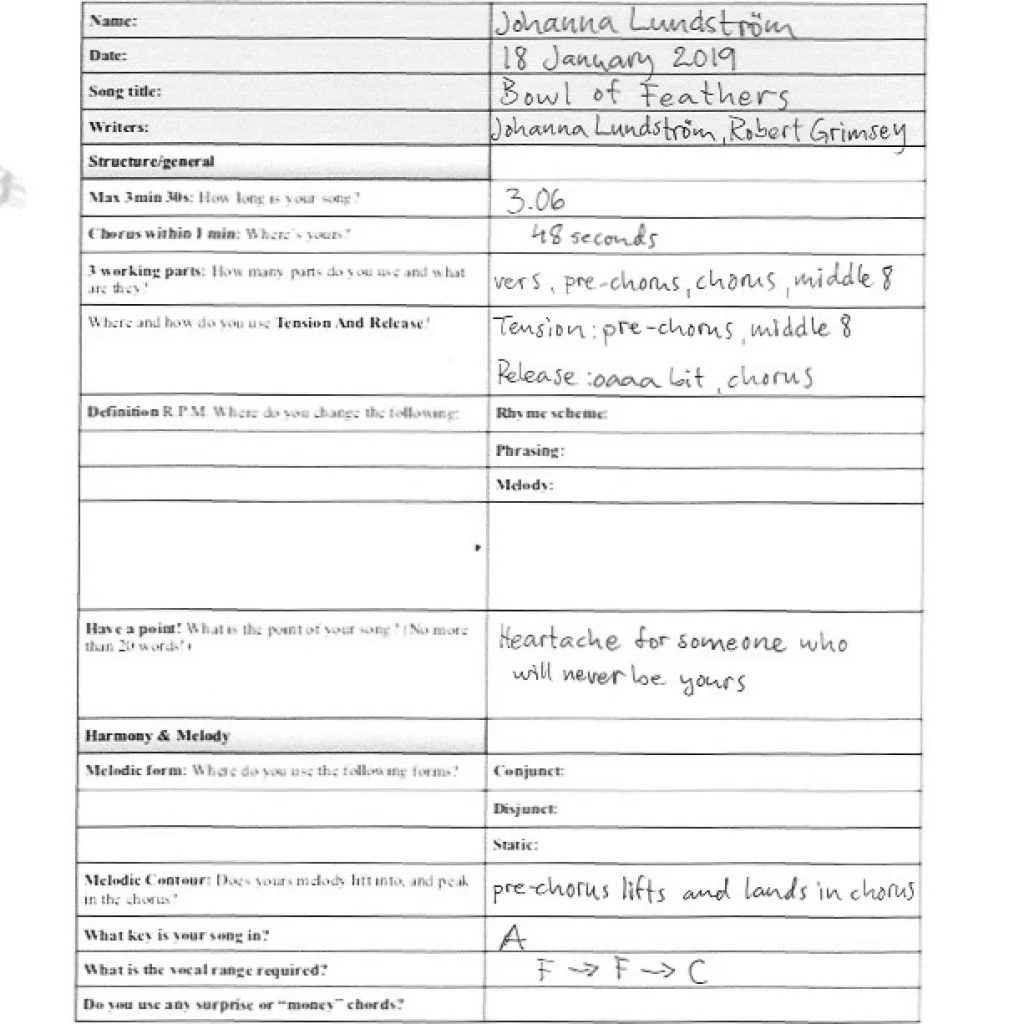 Name: Johanna Lundström
Date: 18 January 2019
Song title: Bowl of Feathers
Writers: Johanna Lundström, Robert Grimsey
Structure/general
Max 3min 30s: How long is your song? 3.06
Chorus within 1 min: Where's yours? 48 seconds
3 working parts: How many parts do you use and what
are they? vers, pre-chorus, chorus, middle 8
Where and how do you use Tension And Release? Tension: pre-chorus, middle 8
Release: oaaa bit, chorus
Definition R.P.M. Where do you change the following: Rhyme scheme:
Phrasing:
Melody:
Have a point! What is the point of your song? (No more
than 20 words!) Heartache for someone who
will never be yours
Harmony & Melody
Melodic form: Where do you use the following forms? Conjunct:
Disjunct:
Static:
Melodic Contour: Does yours melody lift into, and peak
in the chorus? pre-chorus lifts and lands in chorus
What key is your song in? A
What is the vocal range required? F → F → C
Do you use any surprise or "money" chords?